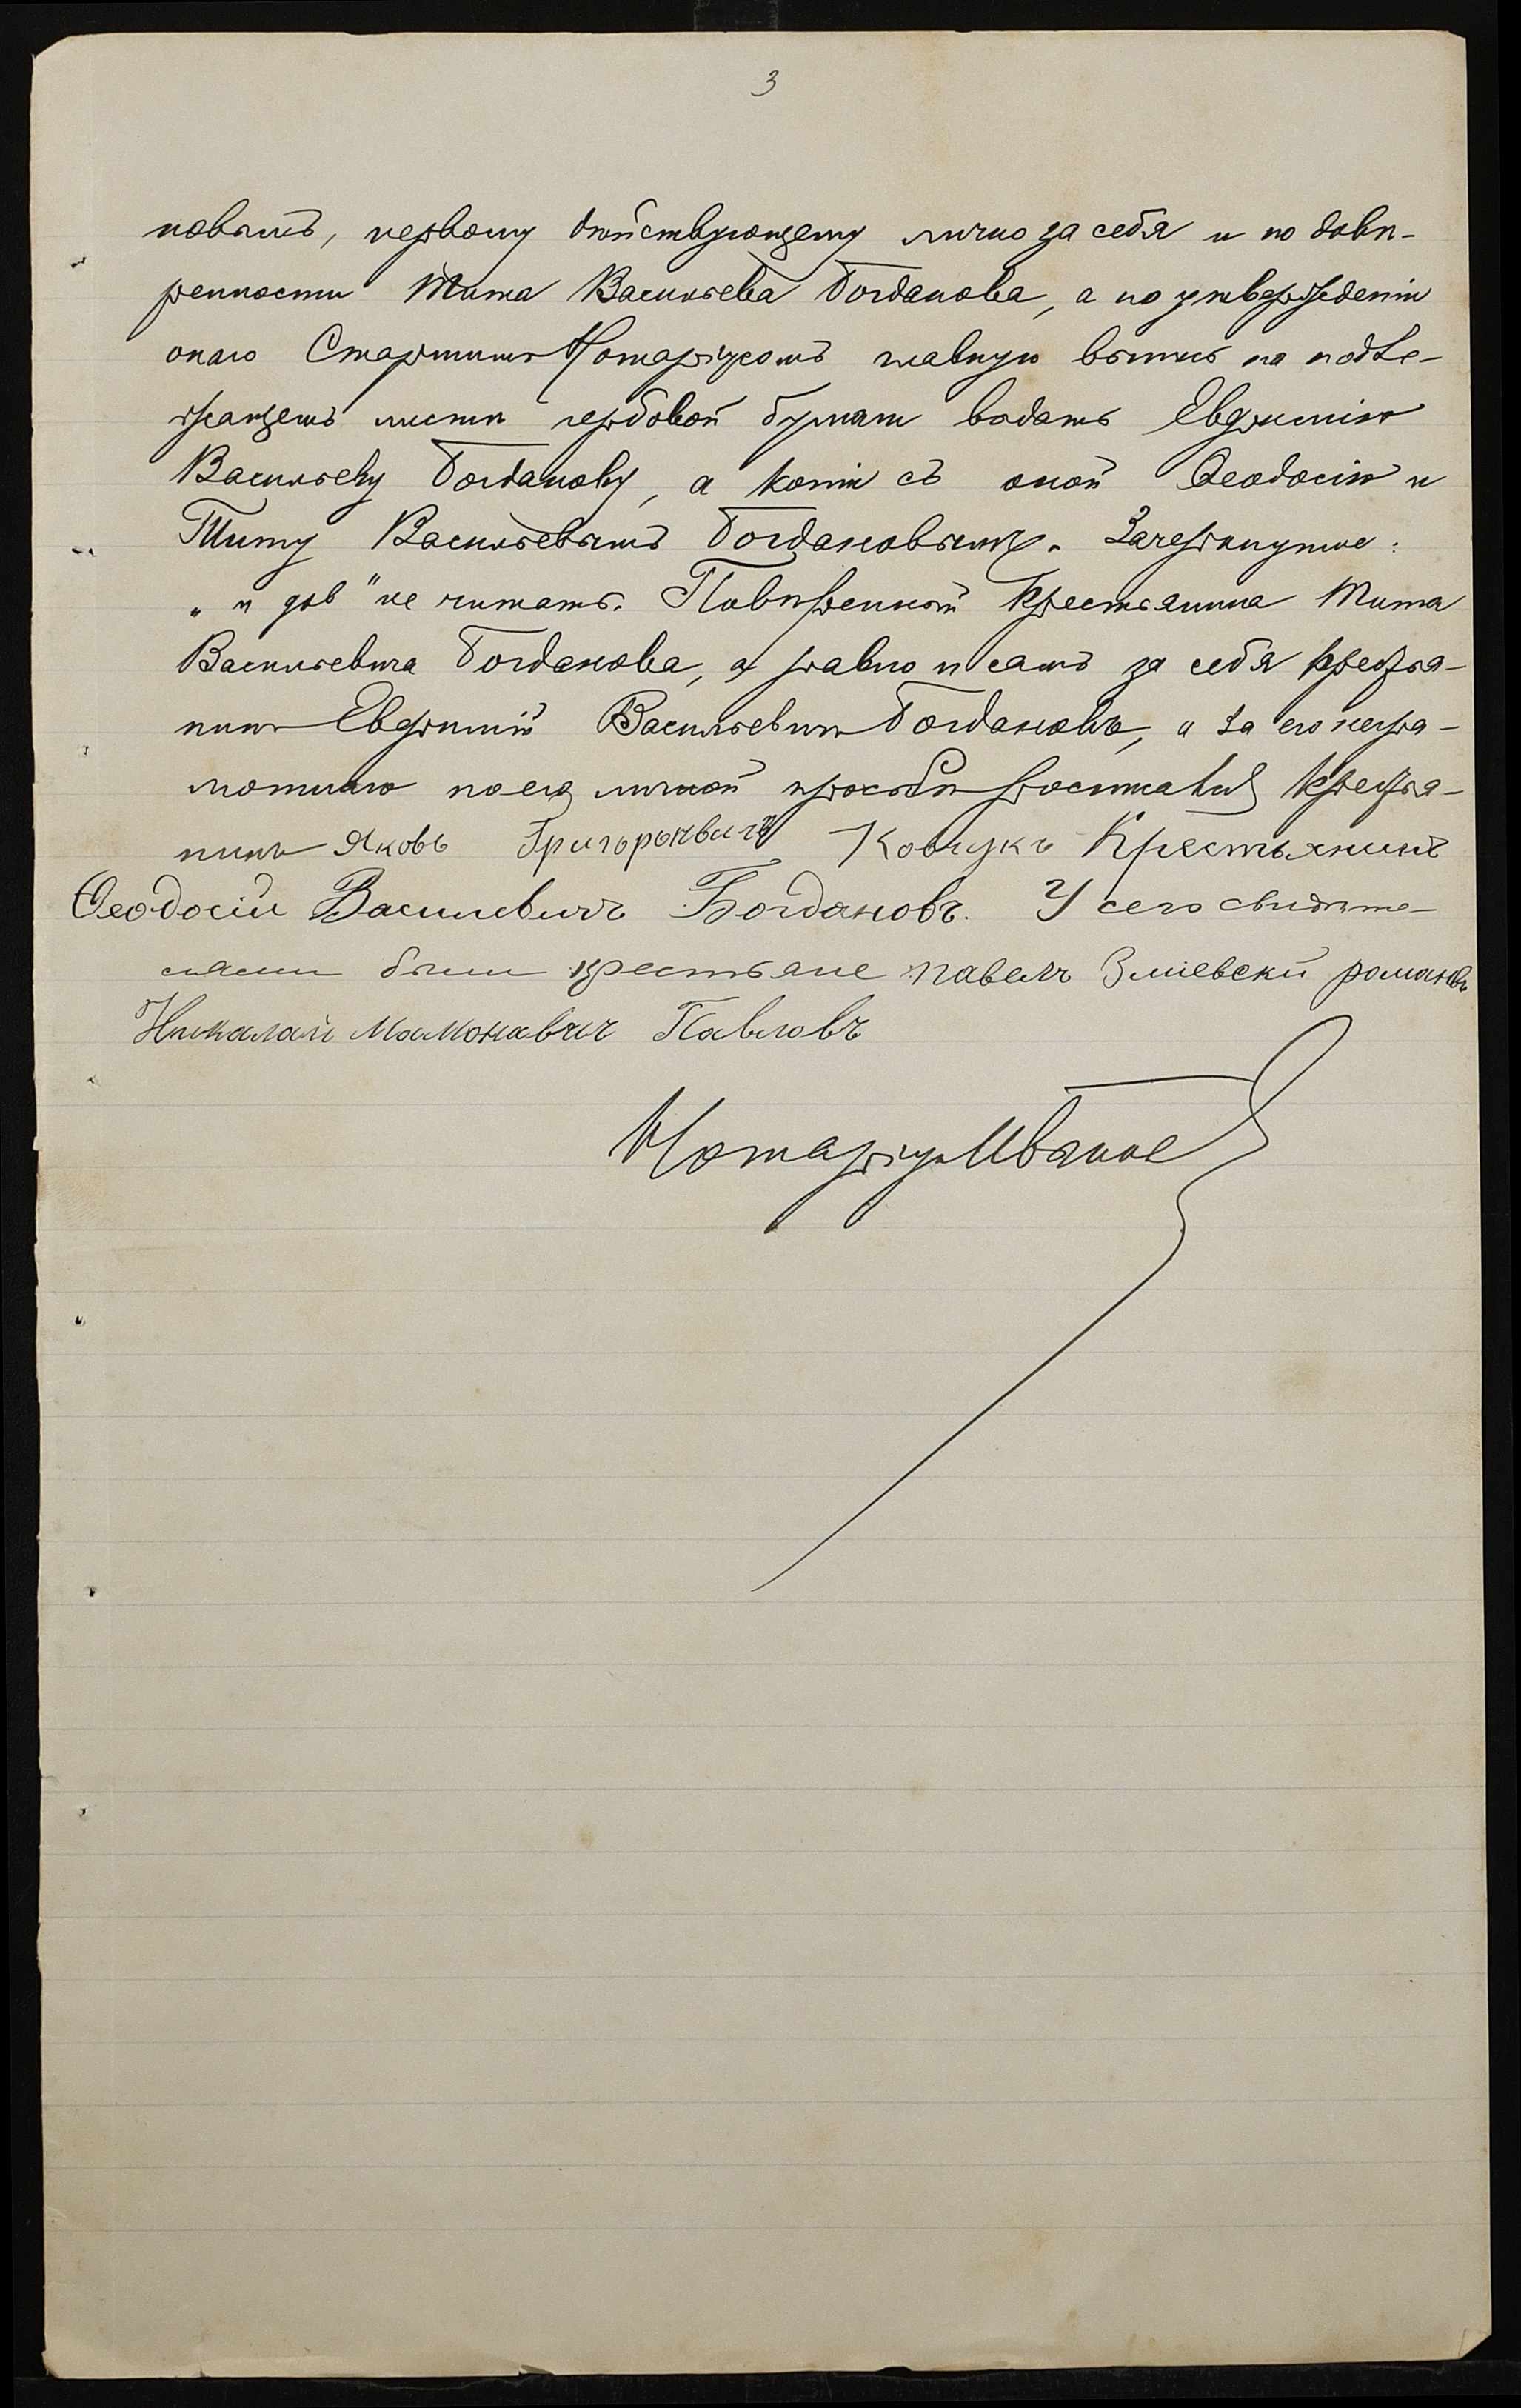 3
новымъ, первому дѣйствующему лично за себя и по довѣ-
ренности Тита Васильева Богданова, а по утвержденіи
онаго Старшимъ Нотаріусомъ главную выпись на подле-
жащемъ листѣ гербовой бумаги выдать Евфимію
Васильеву Богданову, а копіи съ оной Ѳеодосію и
Титу Васильевымъ Богдановымъ. Зачеркнутое:
„и дов" не читать. Повѣренный крестьянина Тита
Васильевича Богданова, а равно и самъ за себя крестья-
нинъ Евфимій Васильевичъ Богдановъ, а за его негра-
мотнаго по его личной просьбѣ росписался крестья-
нинъ Яковъ Григорьевичъ Ковчукъ Крестьянинъ
Ѳеодосій Василевичъ Богдановъ. У сего свидѣте-
лями были крестьяне павелъ Змиевски романовъ
Никалай Мамонавичъ Павловъ
Нотаріусъ